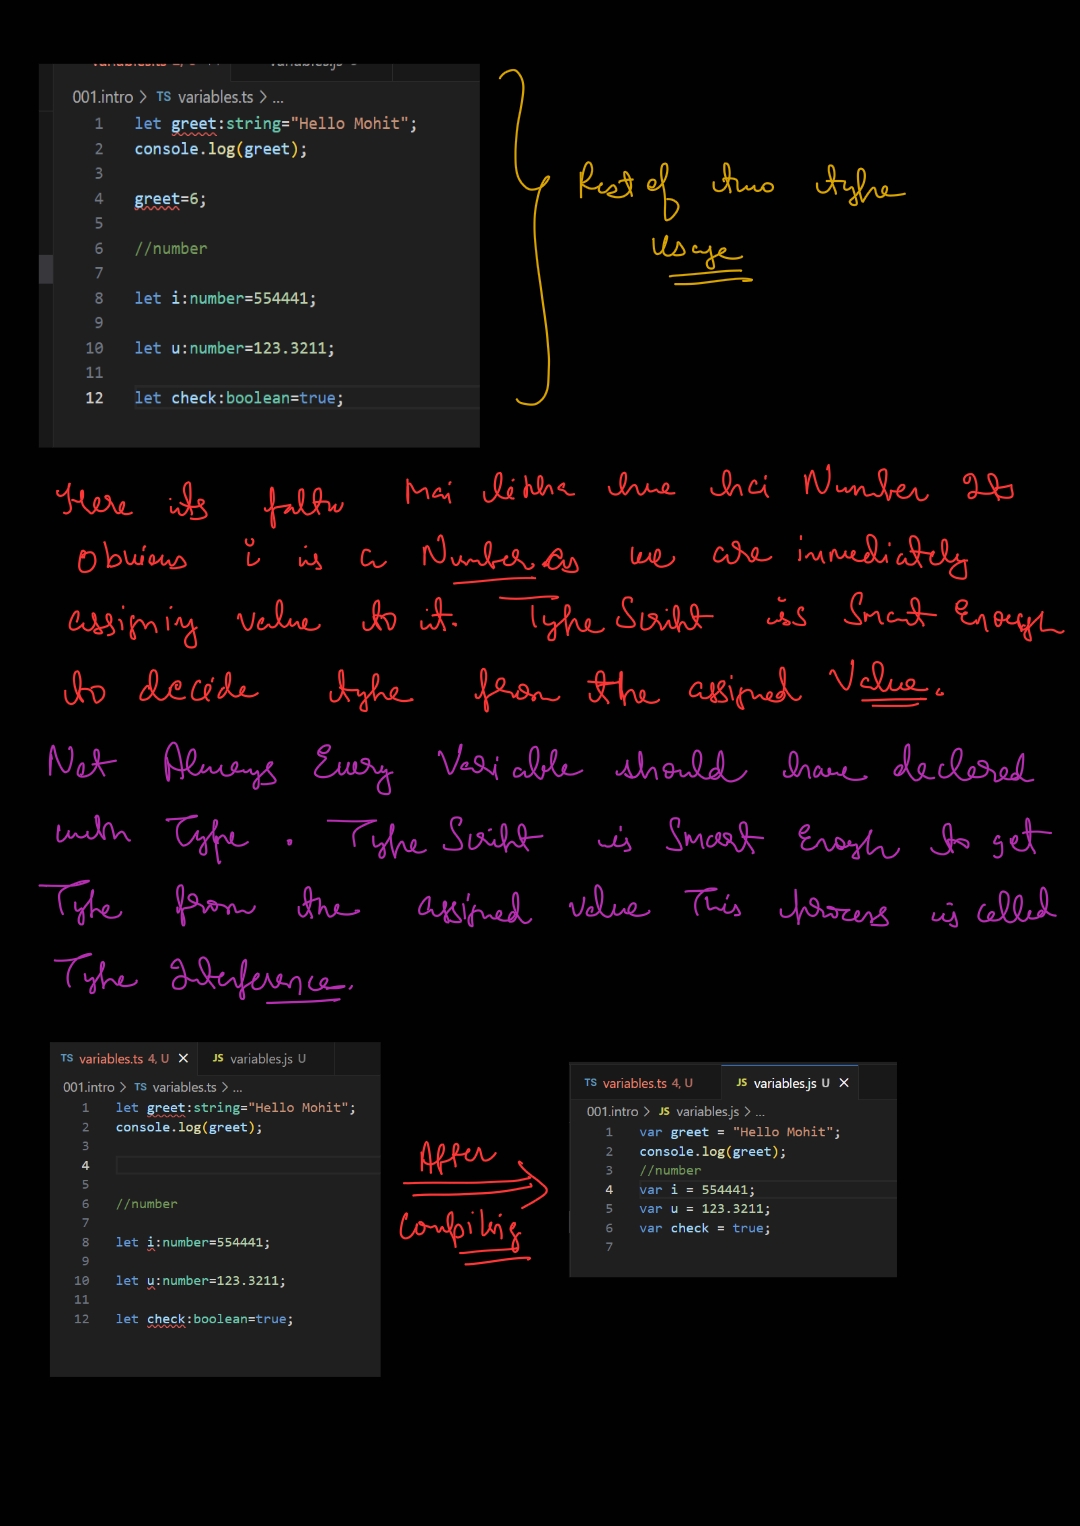 001.intro > TS variables.ts > ...
1 let greet:string="Hello Mohit";
2 console.log(greet);
3
4 greet=6;
5
6 //number
7
8 let i:number=554441;
9
10 let u:number=123.3211;
11
12 let check:boolean=true;
Rest of two type
usage
Here its faltu Mai likha hue hai Number Its
obvious i is a Number as we are immediately
assigning value to it. TypeScript is Smart Enough
to decide type from the assigned Value.
Not Always Every Variable should have declared
with Type. TypeScript is Smart Enough to get
Type from the assigned value This process is called
Type Interference.
TS variables.ts 4, U X JS variables.js U
001.intro > TS variables.ts > ...
1 let greet:string="Hello Mohit";
2 console.log(greet);
3
4
5
6 //number
7
8 let i:number=554441;
9
10 let u:number=123.3211;
11
12 let check:boolean=true;
After
Compiling
TS variables.ts 4, U JS variables.js U X
001.intro > JS variables.js > ...
1 var greet = "Hello Mohit";
2 console.log(greet);
3 //number
4 var i = 554441;
5 var u = 123.3211;
6 var check = true;
7